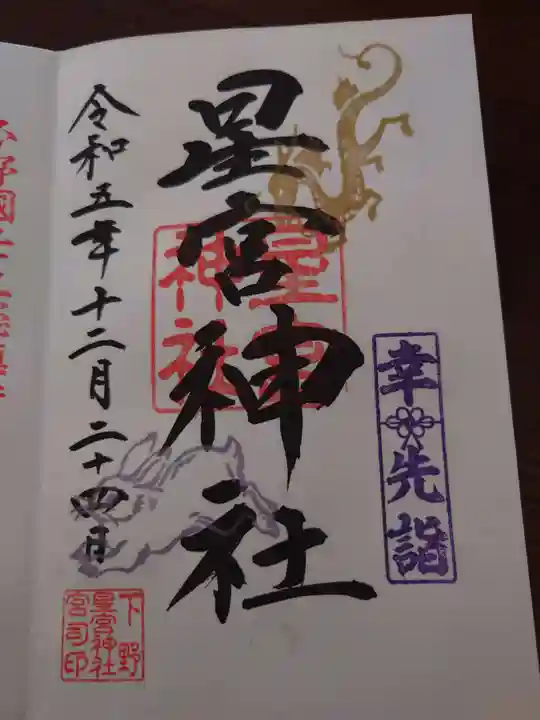 幸先詣
星宮神社
星宮
神社
令和五年十二月二十四日
下野
星宮神社
宮司印